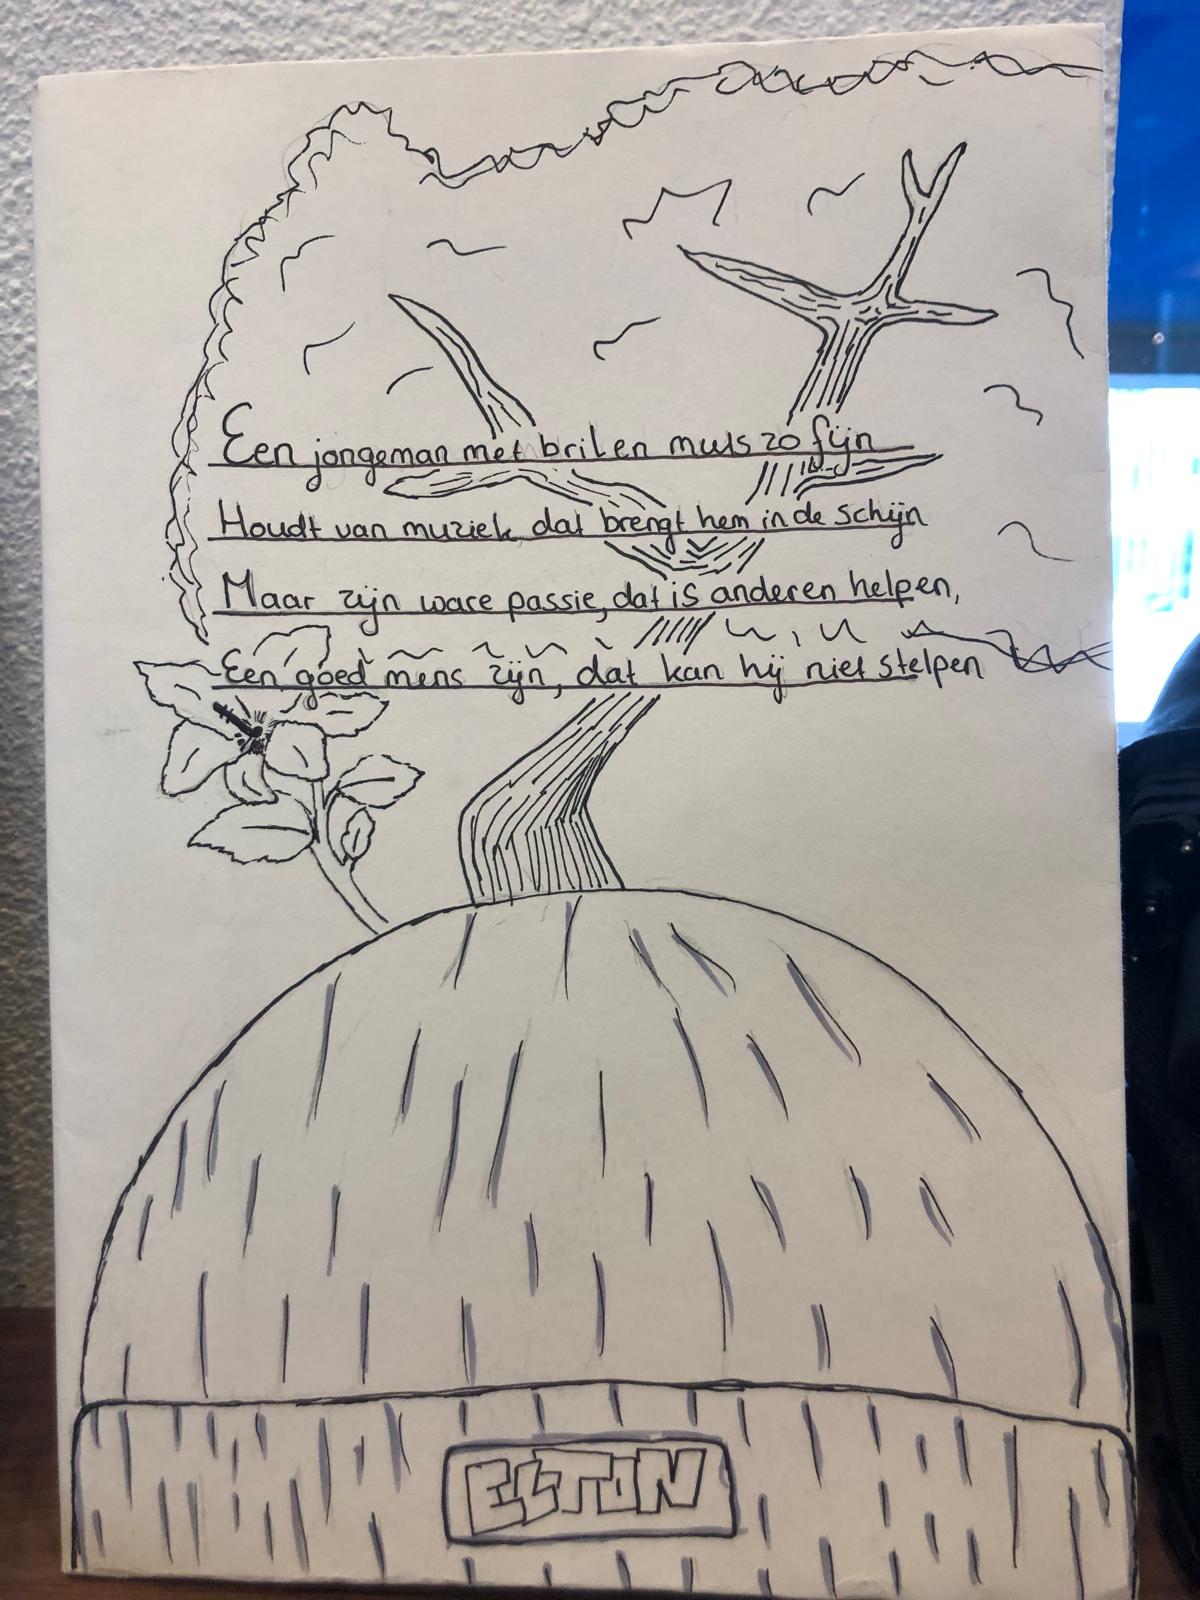 Een jongeman met bril en muts zo fijn
Houdt van muziek, dat brengt hem in de schijn
Maar zijn ware passie, dat is anderen helpen,
Een goed mens zijn, dat kan hij niet stelpen
ELTON